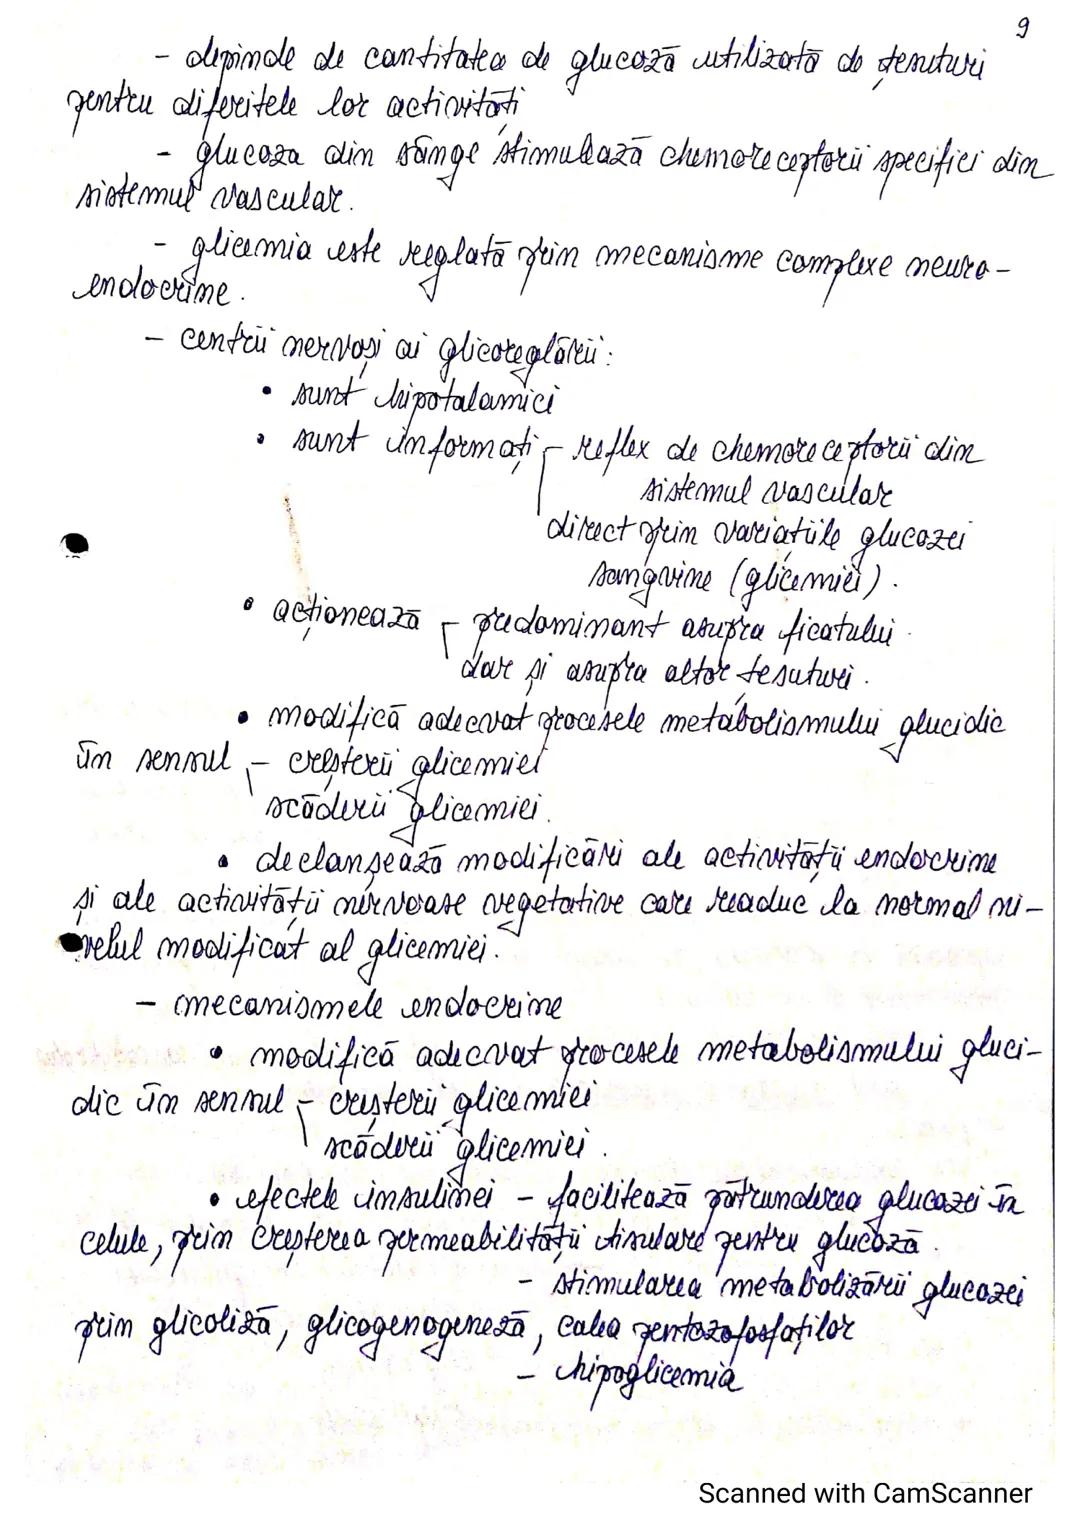 9
- depinde de cantitatea de glucoză utilizată de țesuturi
pentru diferitele lor activități
- glucoza din sânge stimulează chemoreceptorii specifici din
sistemul vascular.
- glicemia este reglată prin mecanisme complexe neuro-
endocrine.
- centrii nervoși ai glicoreglării:
• sunt hipotalamici
• sunt informați - reflex de chemoreceptorii din
sistemul vascular
direct prin variațiile glucozei
sangvine (glicemiei).
• acționează - predominant asupra ficatului
dar și asupra altor țesuturi.
• modifică adecvat procesele metabolismului glucidic
în sensul - creșterii glicemiei
scăderii glicemiei.
• declanșează modificări ale activității endocrine
și ale activității nervoase vegetative care readuc la normal ni-
velul modificat al glicemiei.
- mecanismele endocrine
• modifică adecvat procesele metabolismului gluci-
dic în sensul - creșterii glicemiei
scăderii glicemiei.
• efectele insulinei - facilitează pătrunderea glucozei în
celule, prin creșterea permeabilității tisulare pentru glucoză.
- stimularea metabolizării glucozei
prin glicoliză, glicogenogeneză, calea pentozofosfaților
- hipoglicemia
Scanned with CamScanner